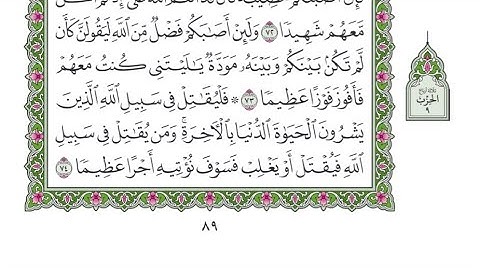 مَّعَهُمْ شَهِيدًا ٧٢ وَلَئِنْ أَصَٰبَكُمْ فَضْلٌ مِّنَ ٱللَّهِ لَيَقُولَنَّ كَأَن
لَّمْ تَكُنۢ بَيْنَكُمْ وَبَيْنَهُۥ مَوَدَّةٌ يَٰلَيْتَنِى كُنتُ مَعَهُمْ
فَأَفُوزَ فَوْزًا عَظِيمًا ٧٣ ۞ فَلْيُقَٰتِلْ فِى سَبِيلِ ٱللَّهِ ٱلَّذِينَ
يَشْرُونَ ٱلْحَيَوٰةَ ٱلدُّنْيَا بِٱلْءَاخِرَةِ ۚ وَمَن يُقَٰتِلْ فِى سَبِيلِ
ٱللَّهِ فَيُقْتَلْ أَوْ يَغْلِبْ فَسَوْفَ نُؤْتِيهِ أَجْرًا عَظِيمًا ٧٤
الحزب
٩
٨٩